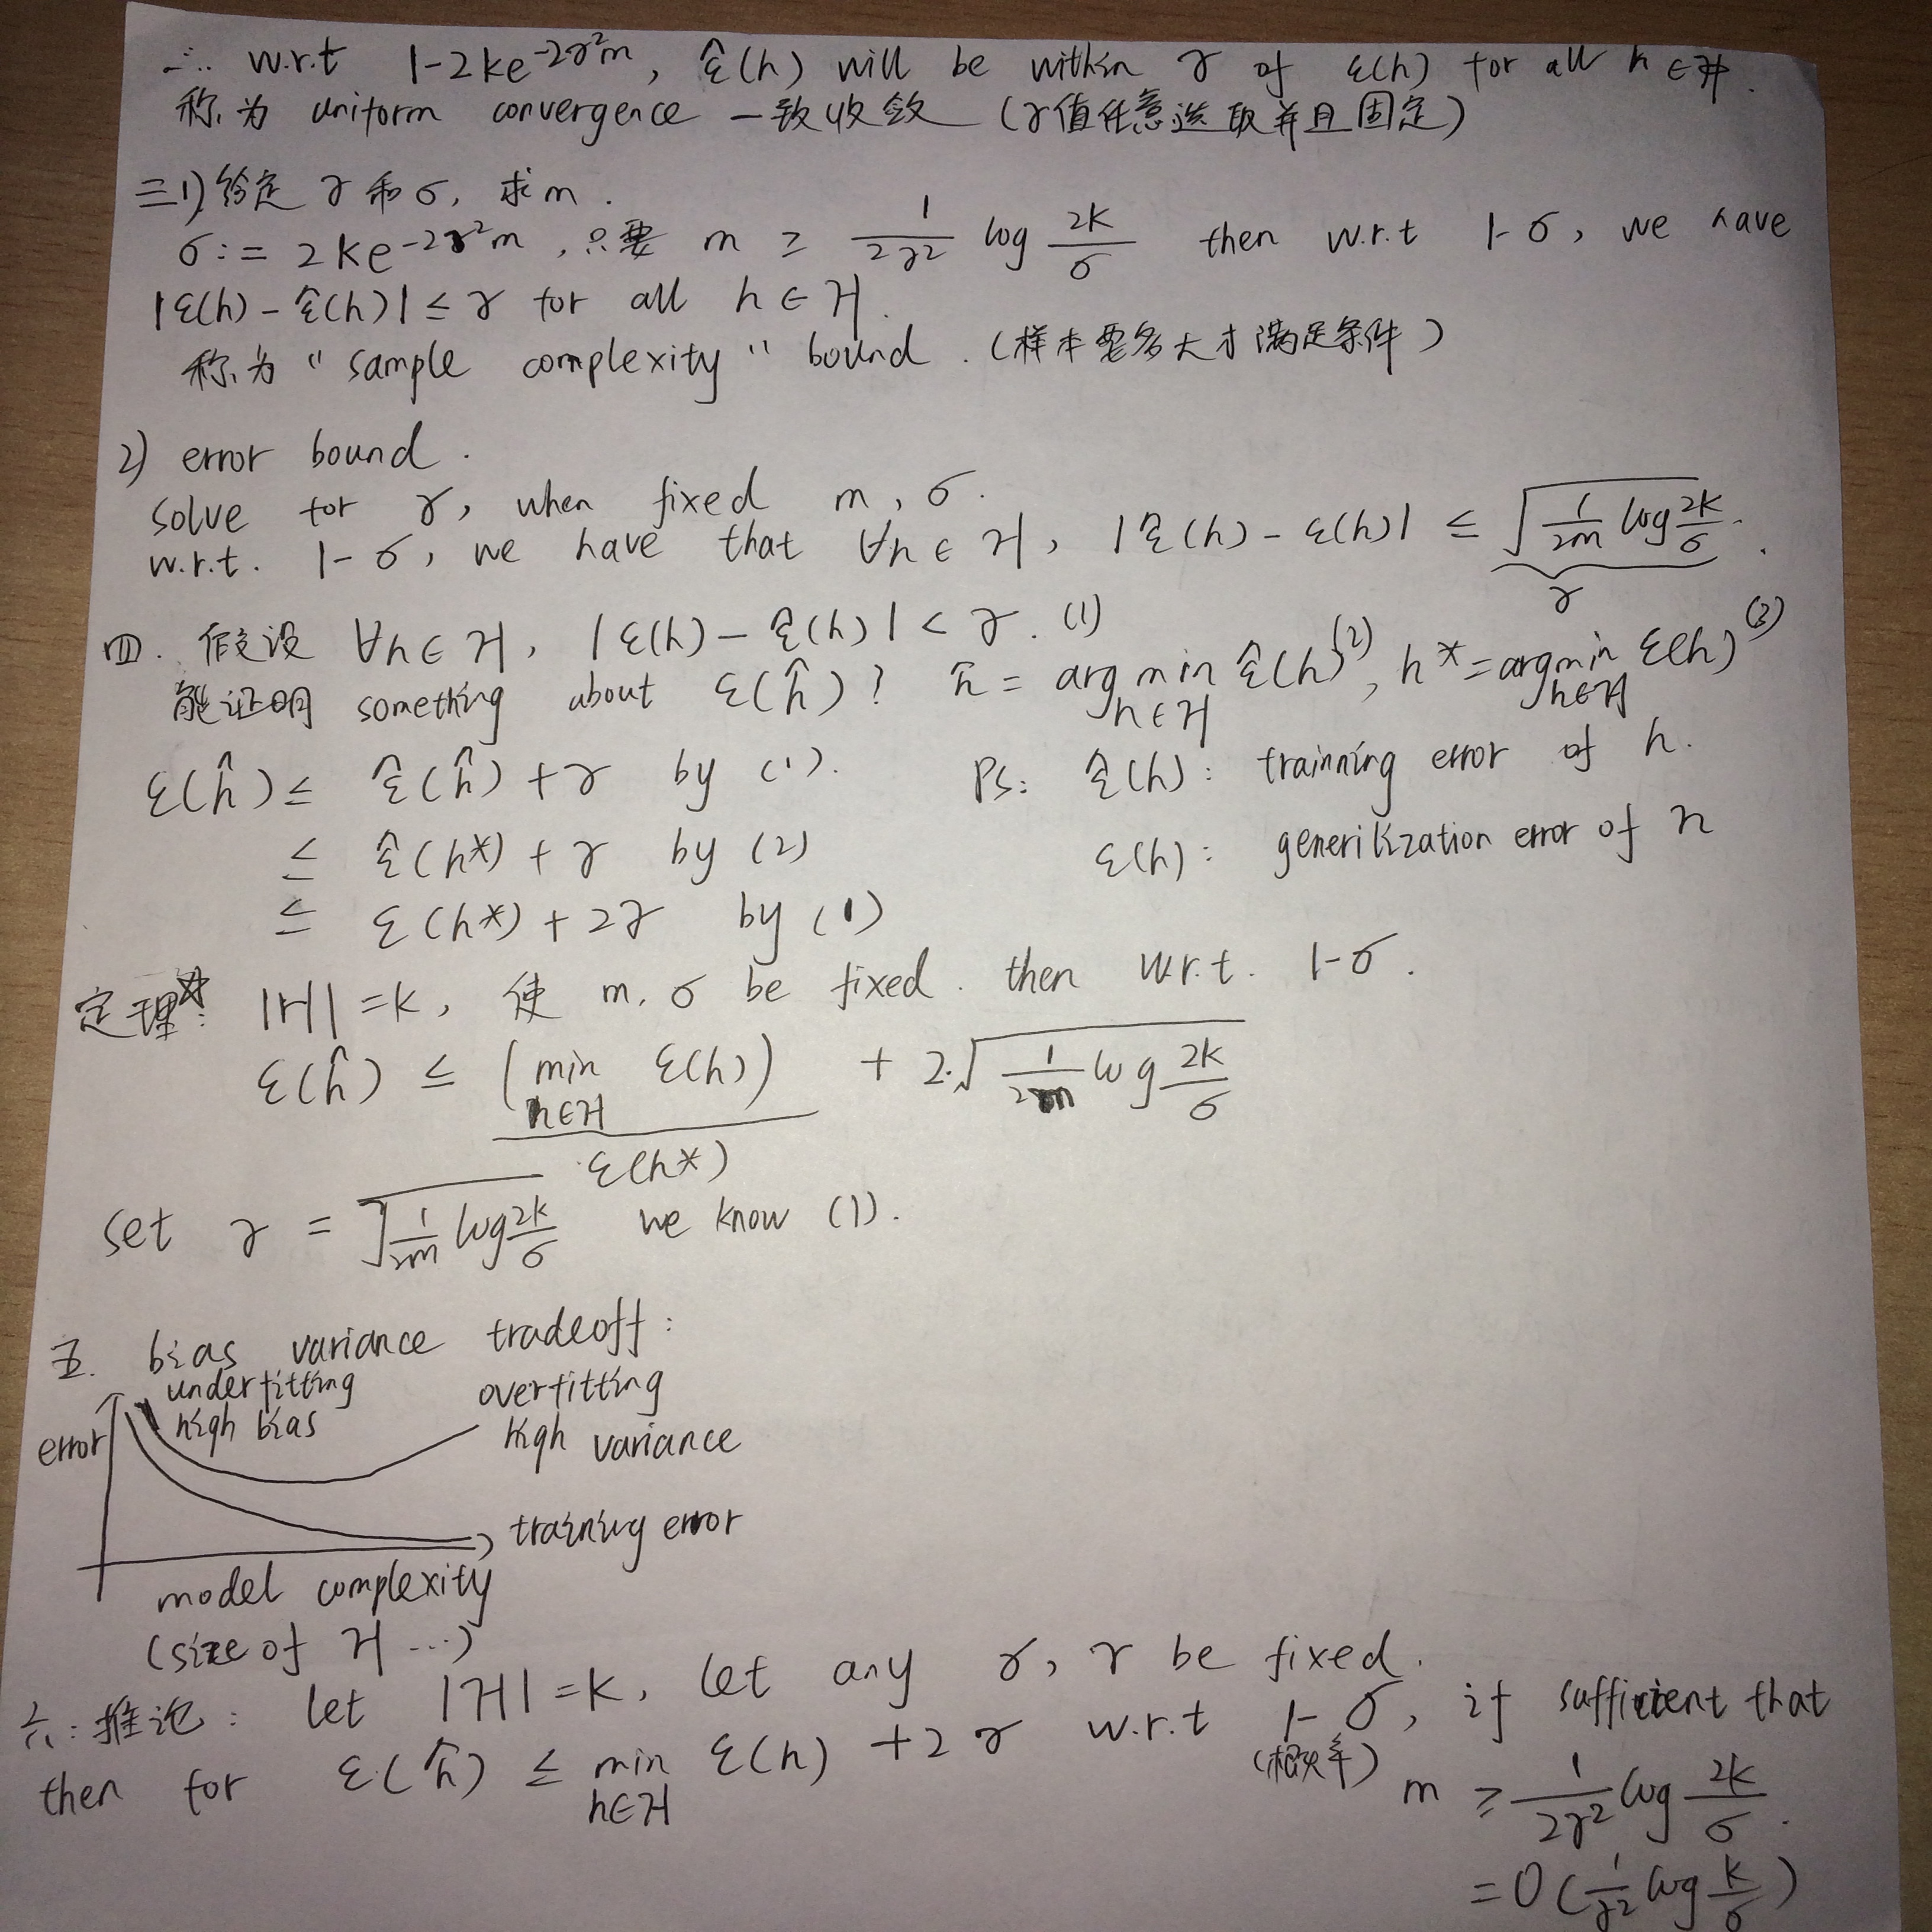 ∴ w.r.t 1-2ke^{-2γ²m}, ε̂(h) will be within γ of ε(h) for all h∈H.
称为 uniform convergence 一致收敛 (γ值任意选取并且固定)
三1)给定 γ 和 σ, 求 m.
σ := 2ke^{-2γ²m}, 只要 m ≥ \frac{1}{2γ²} log \frac{2k}{σ} then w.r.t 1-σ, we have
|ε(h) - ε̂(h)| ≤ γ for all h∈H.
称为 "sample complexity" bound. (样本要多大才满足条件)
2) error bound.
solve for γ, when fixed m, σ.
w.r.t. 1-σ, we have that ∀h∈H, |ε̂(h) - ε(h)| ≤ \sqrt{\frac{1}{2m} log \frac{2k}{σ}}.
γ
四. 假设 ∀h∈H, |ε(h) - ε̂(h)| < γ. (1)
能证明 something about ε(ĥ)? ĥ = arg min_{h∈H} ε̂(h) (2), h* = arg min_{h∈H} ε(h) (3)
ε(ĥ) ≤ ε̂(ĥ) + γ by (1). Ps: ε̂(h): trainning error of h.
≤ ε̂(h*) + γ by (2) ε(h): generilization error of h
≤ ε(h*) + 2γ by (1)
定理*: |H| = k, 使 m, σ be fixed. then w.r.t. 1-σ.
ε(ĥ) ≤ (min_{h∈H} ε(h)) + 2·\sqrt{\frac{1}{2m} log \frac{2k}{σ}}
ε(h*)
set γ = \sqrt{\frac{1}{2m} log \frac{2k}{σ}} we know (1).
五. bias variance tradeoff:
underfitting overfitting
high bias high variance
error
training error
model complexity
(size of H ...)
六: 推论: let |H| = k, let any σ, γ be fixed.
then for ε(ĥ) ≤ min_{h∈H} ε(h) + 2γ w.r.t 1-σ, if sufficient that
(概率)
m ≥ \frac{1}{2γ²} log \frac{2k}{σ}.
= O(\frac{1}{γ²} log \frac{k}{σ})